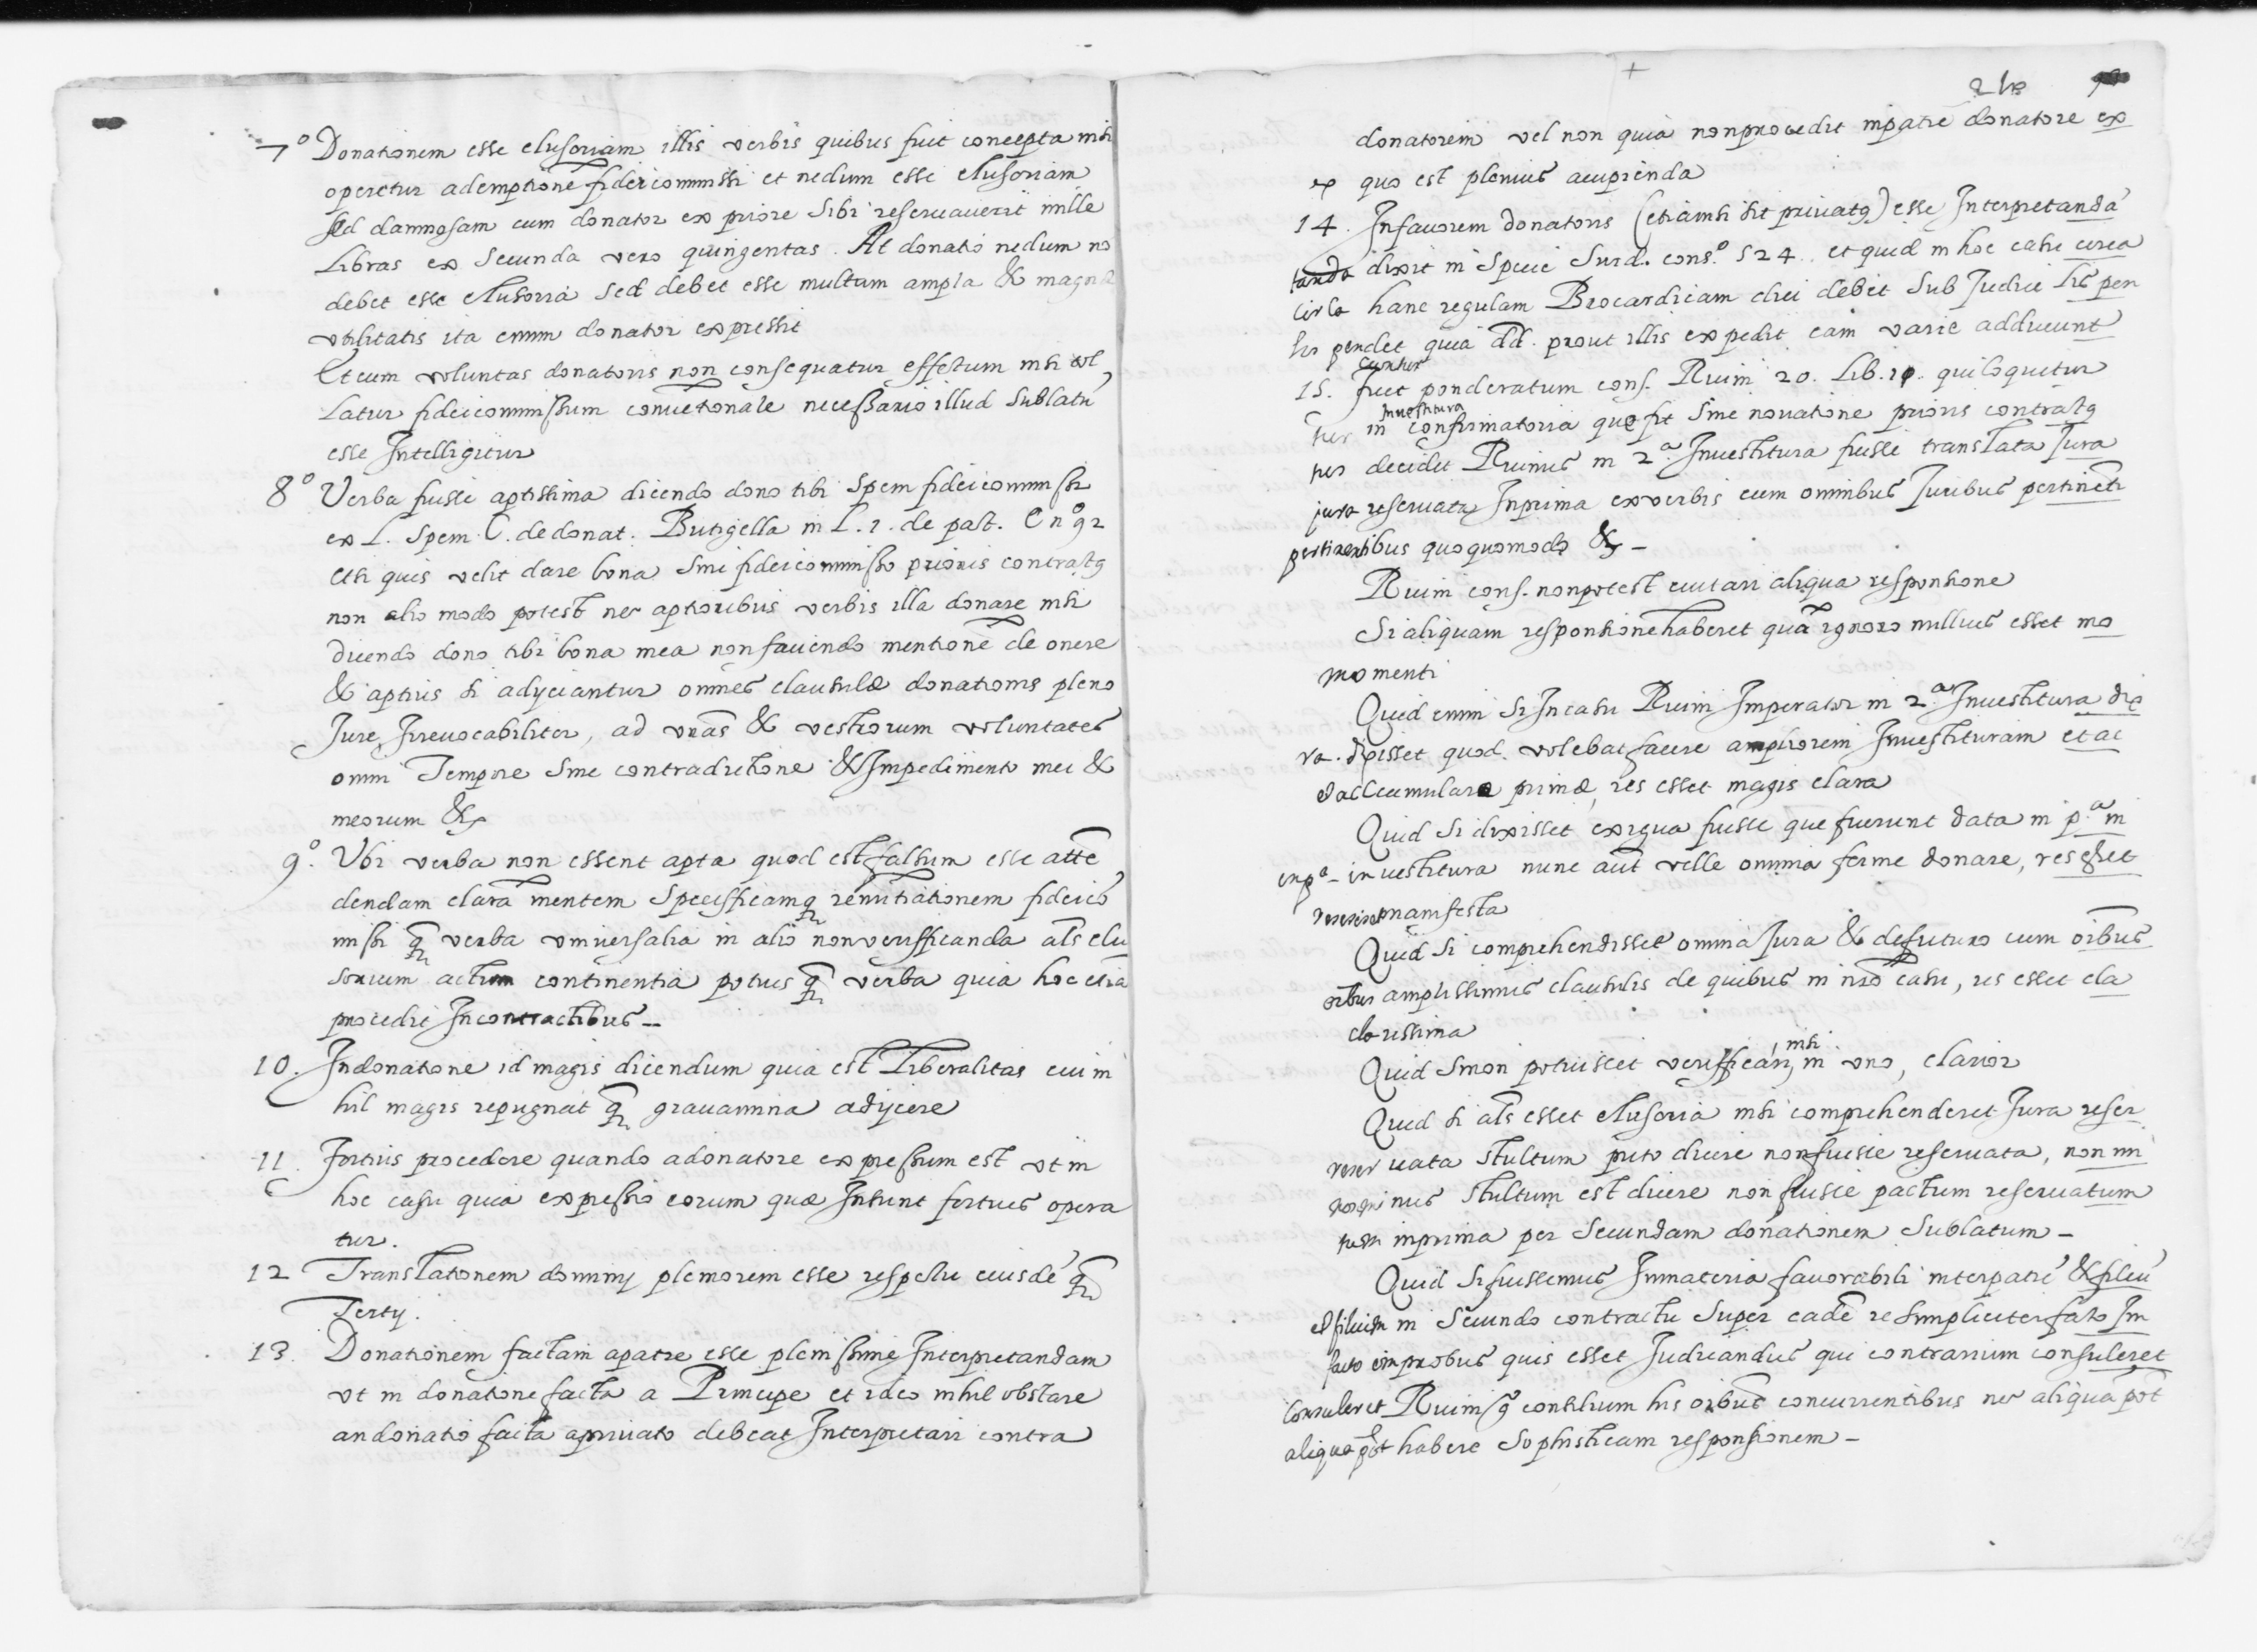 7º Donationem esse elusoriam illis verbis quibus fuit concepta nisi
operetur ademptione fideicommissi et nedum esse elusoriam
sed damnosam cum donator ex priore sibi reservaverit mille
Libras ex secunda vero quingentas. At donatio nedum no
debet esse elusoria sed debet esse multum ampla & magnæ
utilitatis ita enim donator expressit
Et cum voluntas donatoris non consequatur effectum nisi tol
latur fideicommissum conventionale necessario illud sublatu
esse Intelligitur
8º Verba fuisse aptissima dicendo dono tibi spem fideicommissi
ex L. Spem C. de donat. Butigella in L. 1. de pact. C nº 92
Etsi quis velit dare bona sine fideicommisso prioris contractq
non alio modo potest nec aptioribus verbis illa donare nisi
dicendo dono tibi bona mea non faciendo mentione de onere
& aptius si adijciantur omnes clausulæ donationis pleno
Jure, Irrevocabiliter, ad vras & vestrorum voluntates
omni Tempore sine contradictione & Impedimento mei &
meorum &c
9º. Ubi verba non essent apta quod est falsum esse atte
dendam clara mentem specifficamq renutiationem fideico
missi q verba universalia in alio non verifficanda als elu
sorium actum continentia potius q verba quia hoc etia
procedit In contractibus _
10. In donatione id magis dicendum quia est Liberalitas cui ni
hil magis repugnat q gravamina adijcere
11. Fortius procedere quando a donatore expressum est ut in
hoc casu quia expressio eorum quæ Insunt fortius opera
tur.
12 Translationem dominij pleniorem esse respectu eiusde q
Tertij.
13. Donationem factam a patre esse plenissime Interpretandam
ut in donatione facta a Principe et ideo nihil obstare
an donatio facta a privato debeat Interpretari contra
24
donatorem vel non quia non procedit in patre donatore ex
ex quo est plenius accipienda
14. In favorem donatoris (etiam si sit privatq) esse Interpretanda
tanda dixit in specie Surd. cons.º 524. et quid in hoc casu circa
circa hanc regulam Brocardicam dici debet sub Judice lis pen
lis pendet quia dd. prout illis expedit eam varie adducunt
cuntur
15. Fuit ponderatum cons. Ruini 20. Lib. 1. qui loquitur
tur in Investitura confirmatoria quæ fit sine novatione prioris contractq
tus decidit Ruinus in 2.ª Investitura fuisse translata Jura
jura reservata In prima ex verbis cum omnibus Juribus pertineti
pertinentibus quoquomodo & _
Ruini cons. non potest evitari aliqua responsione
Si aliquam responsione haberet qua ignoro nullius esset mo
momenti
Quid enim si In casu Ruini Imperator in 2.ª Investitura di
ra. dixisset quod volebat facere ampliorem Investituram et ac
et accumulare primæ, res esset magis clara
Quid si dixisset exigua fuisse que fuerunt data in p.ª in
in pª investitura nunc aut velle omnia ferme donare, res esset
res esset manifesta
Quid si comprehendisset omnia Jura & de futuro cum oibus
oibus amplissimis clausulis de quibus in nro casu, res esset cla
clarissima
Quid si non potuisset verifficari, nisi in uno, clarior
Quid si als esset elusoria nisi comprehenderet Jura reser
reser vata stultum puto dicere non fuisse reservata, non mi
non minus stultum est dicere non fuisse pactum reservatum
tum in prima per secundam donationem sublatum _
Quid si fuissemus In materia favorabili inter patre & filiu
et filium in secundo contractu super eade re simpliciter facto Im
facto improbus quis esset Judicandus qui contrarium consuleret
consuleret Ruini q consilium his oibus concurrentibus nec aliqua pot
aliqua pot habere sophisticam responsionem _